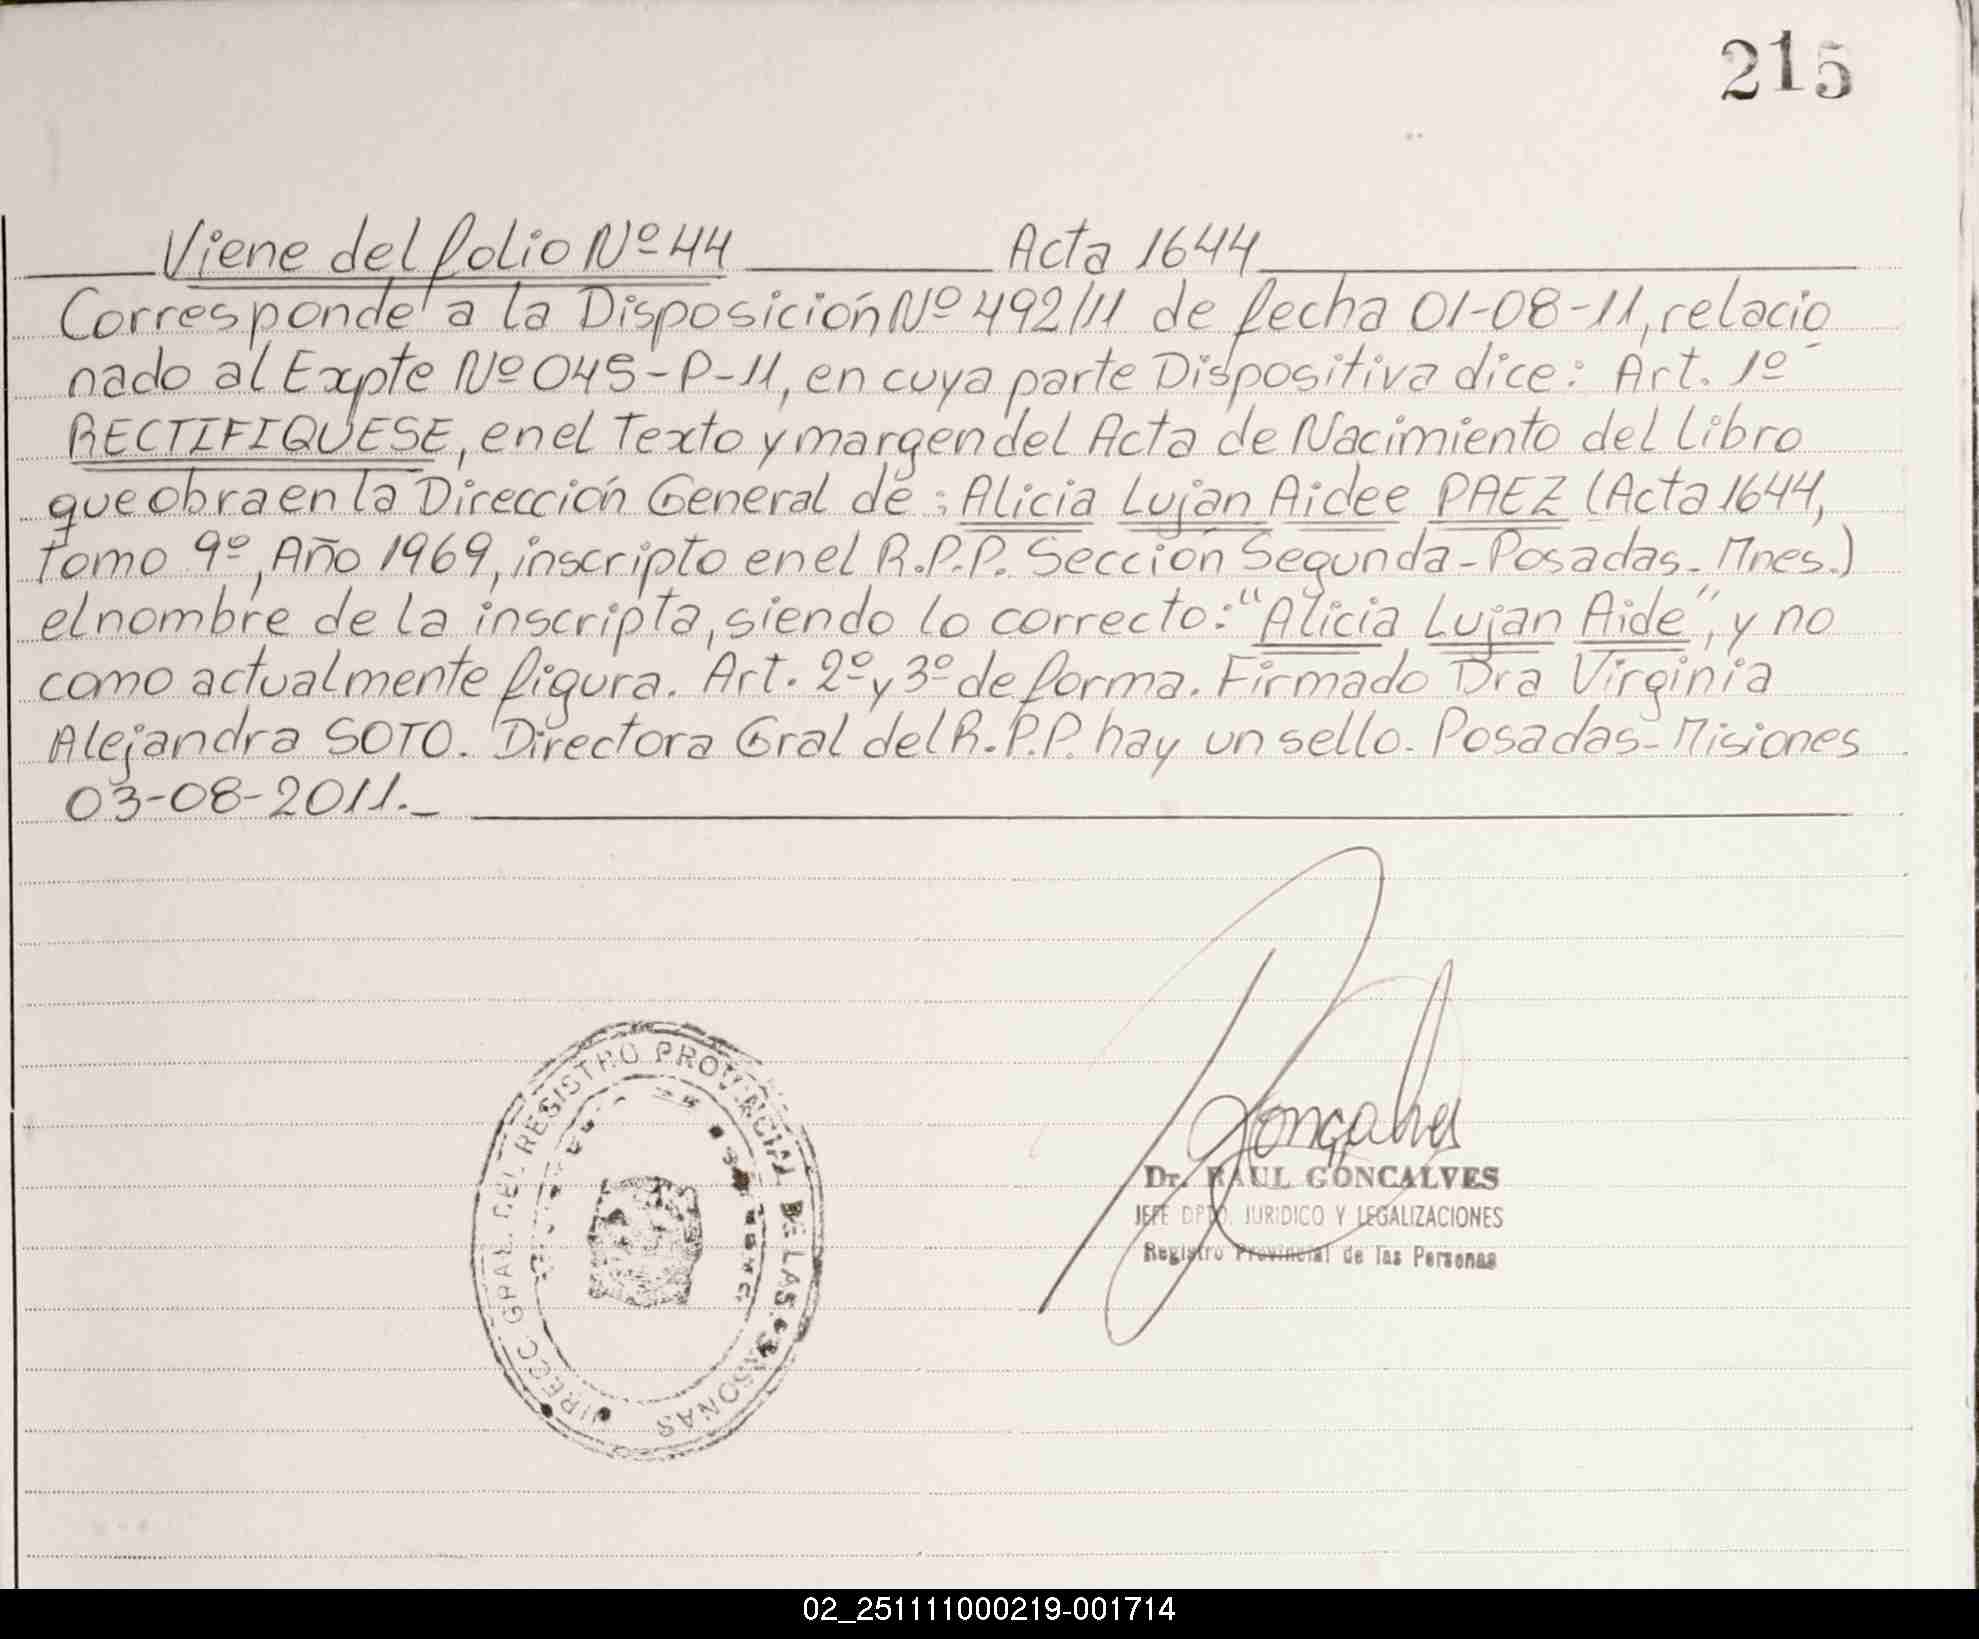 215
Viene del folio Nº 44 Acta 1644
Corresponde a la Disposición Nº 492/11 de fecha 01-08-11, relacio
nado al Expte Nº 045-P-11, en cuya parte Dispositiva dice: Art. 1º
RECTIFIQUESE, en el Texto y margen del Acta de Nacimiento del libro
que obra en la Dirección General de: Alicia Lujan Aidee PAEZ (Acta 1644,
Tomo 9º, Año 1969, inscripto en el R.P.P. Sección Segunda-Posadas-Mnes.)
el nombre de la inscripta, siendo lo correcto: "Alicia Lujan Aide", y no
como actualmente figura. Art. 2º y 3º de forma. Firmado Dra Virginia
Alejandra SOTO. Directora Gral del R.P.P. hay un sello. Posadas-Misiones
03-08-2011.-
DIRECC. GRAL. DEL REGISTRO PROVINCIAL DE LAS PERSONAS
Gonçalves
Dr. RAUL GONCALVES
JEFE DPTO. JURIDICO Y LEGALIZACIONES
Registro Provincial de las Personas
02_251111000219-001714